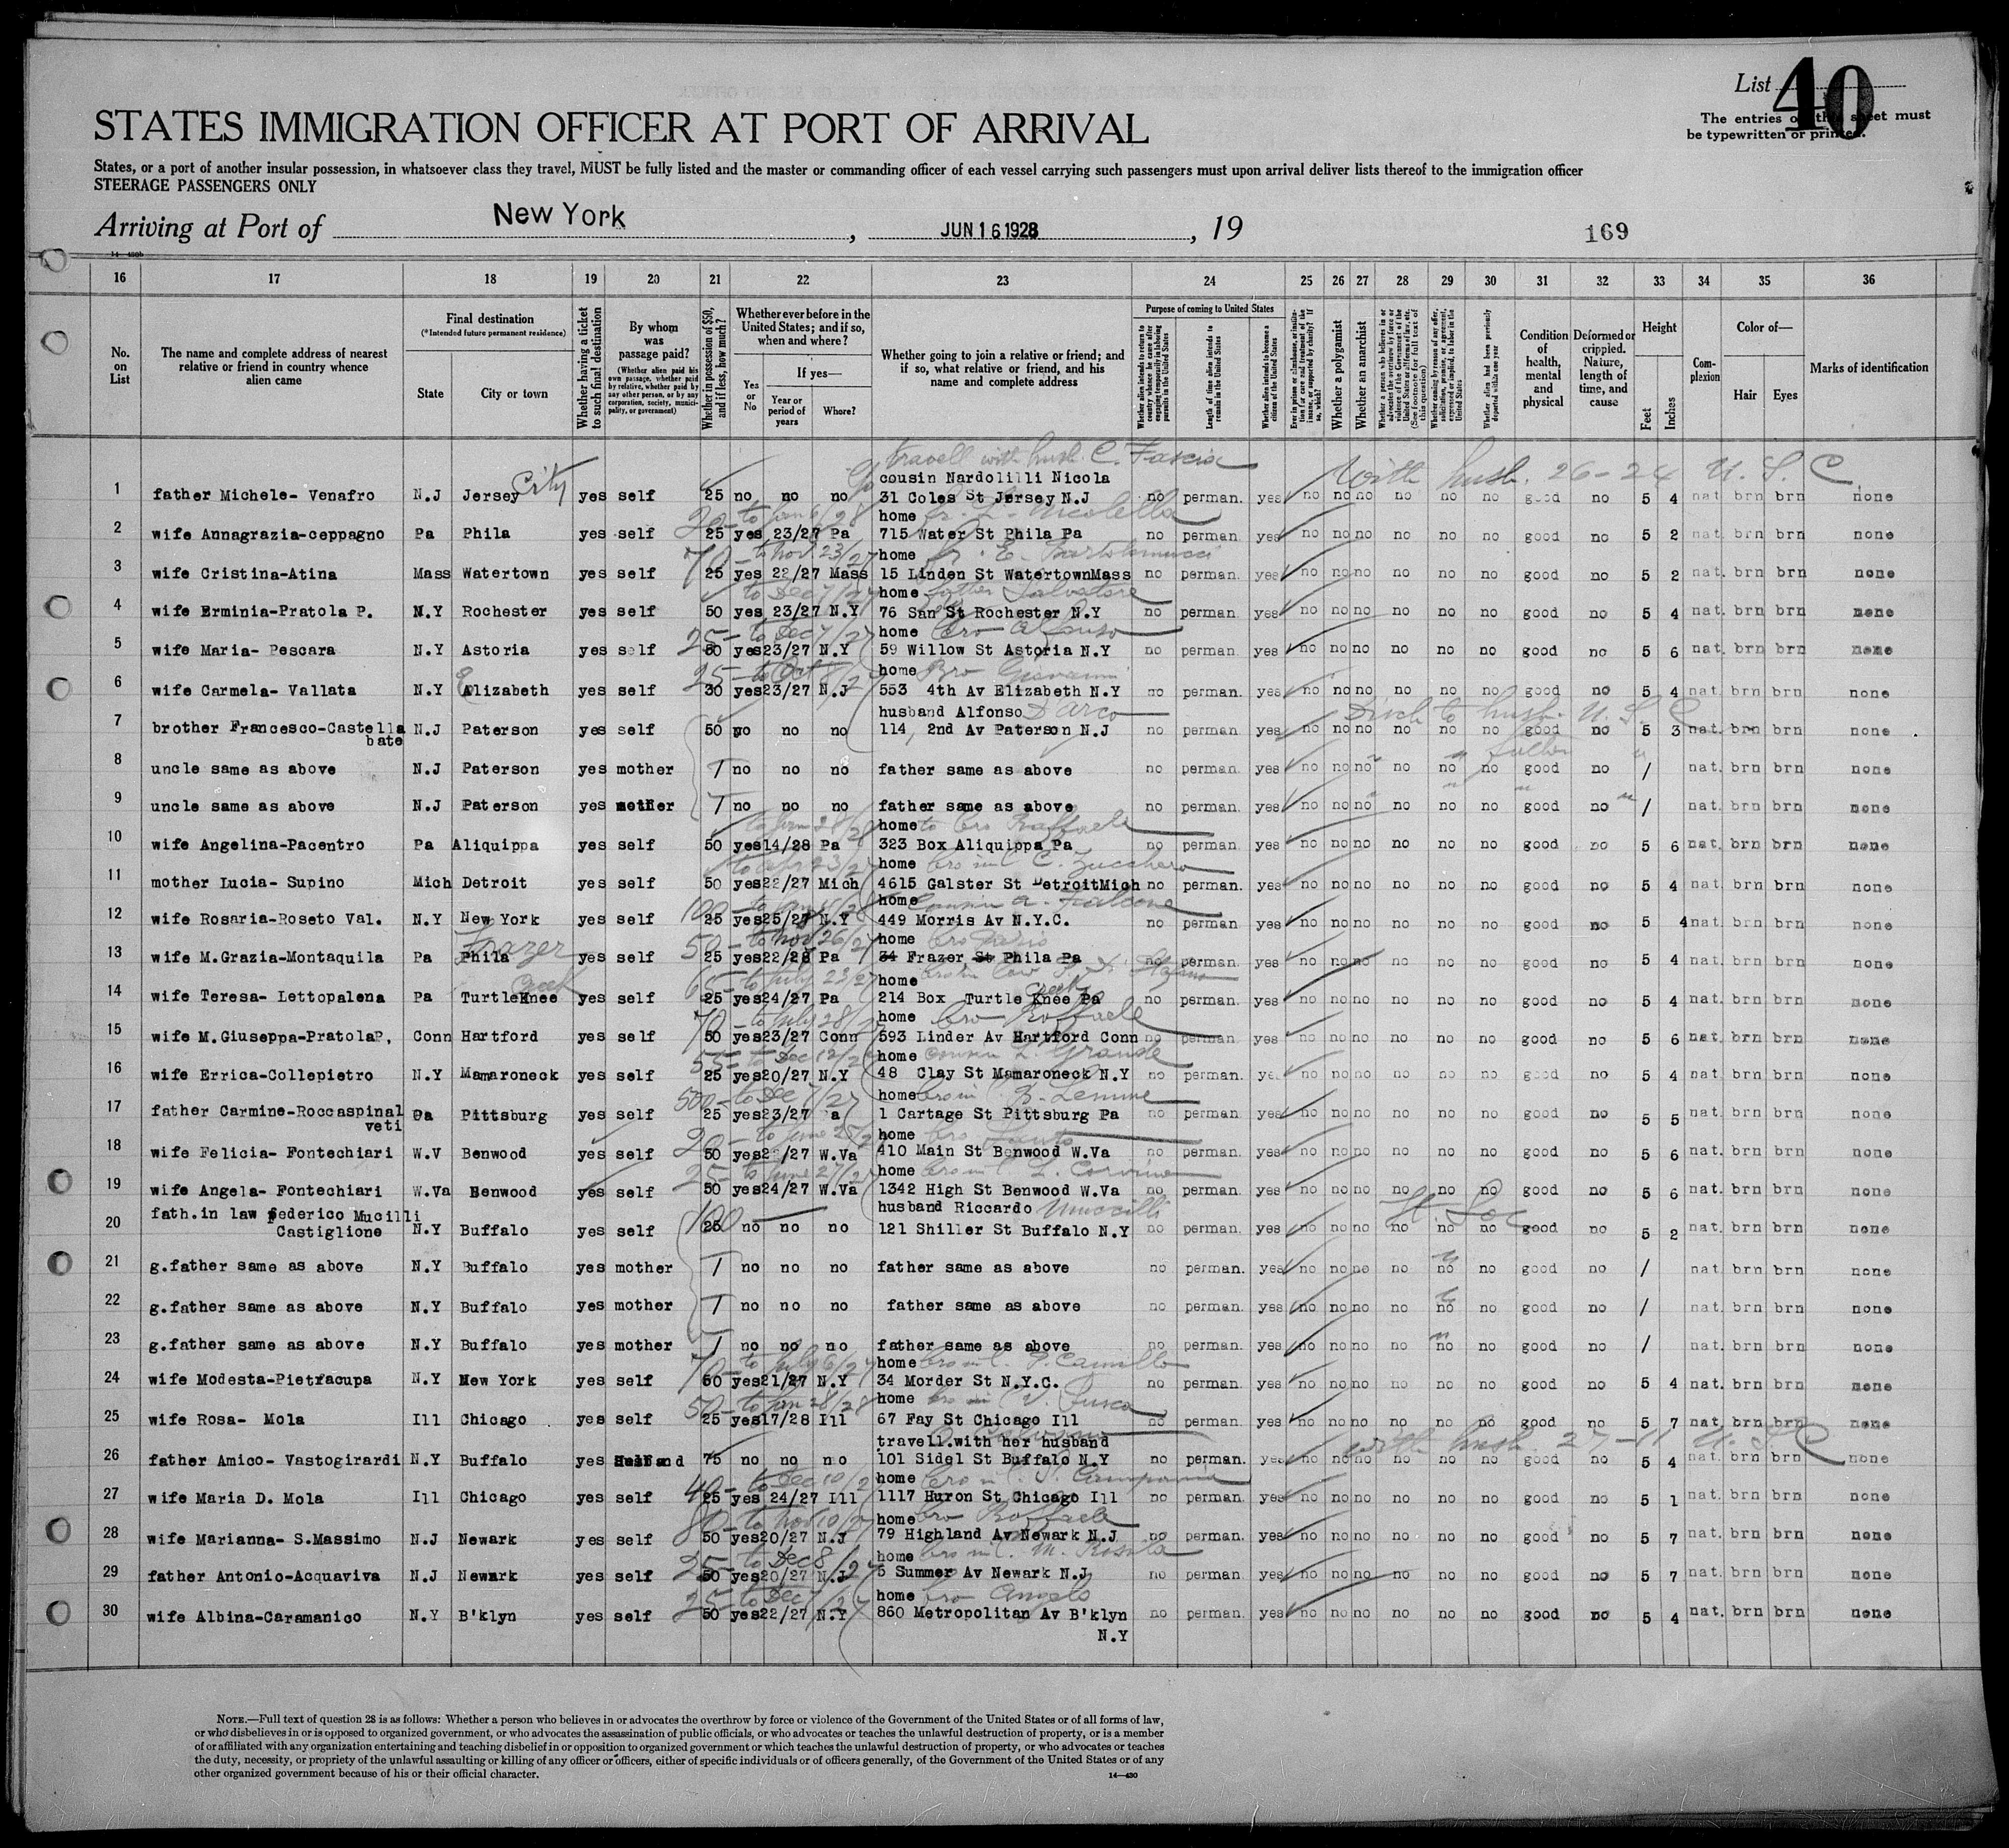 List 40
The entries on this sheet must
be typewritten or printed.
STATES IMMIGRATION OFFICER AT PORT OF ARRIVAL
States, or a port of another insular possession, in whatsoever class they travel, MUST be fully listed and the master or commanding officer of each vessel carrying such passengers must upon arrival deliver lists thereof to the immigration officer
STEERAGE PASSENGERS ONLY
Arriving at Port of New York, JUN 16 1928, 19
169
16 17 18 19 20 21 22 23 24 25 26 27 28 29 30 31 32 33 34 35 36
No. on List
The name and complete address of nearest relative or friend in country whence alien came
Final destination
(*Intended future permanent residence)
State
City or town
Whether having a ticket to such final destination
By whom was passage paid?
(Whether alien paid his own passage, whether paid by relative, whether paid by any other person, or by any corporation, society, municipality, or government)
Whether in possession of $50, and if less, how much?
Whether ever before in the United States; and if so, when and where?
Yes or No
If yes—
Year or period of years
Where?
Whether going to join a relative or friend; and if so, what relative or friend, and his name and complete address
Purpose of coming to United States
Length of time alien intends to remain in the United States
Whether alien intends to become a citizen of the United States
Whether a polygamist
Whether an anarchist
Condition of health, mental and physical
Deformed or crippled. Nature, length of time, and cause
Height
Feet
Inches
Complexion
Color of—
Hair
Eyes
Marks of identification
travell with husb. C. Fascia
With husb. 26-24 U.S.C
cousin Nardolilli Nicola
1 father Michele- Venafro N.J Jersey City yes self 25 no no no 31 Coles St Jersey N.J no perman. yes no no no no no no good no 5 4 nat. brn brn none
home
2 wife Annagrazia-ceppagno Pa Phila yes self 25 yes 23/27 Pa 715 Water St Phila Pa no perman. yes no no no no no no good no 5 2 nat. brn brn none
home
3 wife Cristina-Atina Mass Watertown yes self 25 yes 22/27 Mass 15 Linden St WatertownMass no perman. yes no no no no no no good no 5 2 nat. brn brn none
home father Salvatore
4 wife Erminia-Pratola P. N.Y Rochester yes self 50 yes 23/27 N.Y 76 San St Rochester N.Y no perman. yes no no no no no no good no 5 4 nat. brn brn none
home bro Alfonso
5 wife Maria- Pescara N.Y Astoria yes self 50 yes23/27 N.Y 59 Willow St Astoria N.Y no perman. yes no no no no no no good no 5 6 nat. brn brn none
home Bro Giovanni
6 wife Carmela- Vallata N.Y Elizabeth yes self 30 yes23/27 N.J 553 4th Av Elizabeth N.Y no perman. yes no no no no no no good no 5 4 nat. brn brn none
husband Alfonso D'Arco
7 brother Francesco-Castella N.J Paterson yes self 50 no no no 114, 2nd Av Paterson N.J no perman. yes no no no no no no good no 5 3 nat. brn brn none
bate
8 uncle same as above N.J Paterson yes mother / no no no father same as above no perman. yes no no no no no no good no / nat. brn brn none
9 uncle same as above N.J Paterson yes mother / no no no father same as above no perman. yes no no no no no no good no / nat. brn brn none
home to bro Raffaele
10 wife Angelina-Pacentro Pa Aliquippa yes self 50 yes14/28 Pa 323 Box Aliquippa Pa no perman. yes no no no no no no good no 5 6 nat. brn brn none
home
11 mother Lucia- Supino Mich Detroit yes self 50 yes22/27 Mich 4615 Galster St DetroitMich no perman. yes no no no no no no good no 5 4 nat. brn brn none
home cousin A. Falcone
12 wife Rosaria-Roseto Val. N.Y New York yes self 25 yes25/27 N.Y 449 Morris Av N.Y.C. no perman. yes no no no no no no good no 5 4 nat. brn brn none
home
13 wife M.Grazia-Montaquila Pa Phila Frazer yes self 25 yes22/28 Pa 34 Frazer St Phila Pa no perman. yes no no no no no no good no 5 4 nat. brn brn none
home
14 wife Teresa- Lettopalena Pa TurtleKnee Creek yes self 25 yes24/27 Pa 214 Box Turtle Knee Pa Creek no perman. yes no no no no no no good no 5 4 nat. brn brn none
home bro Raffaele
15 wife M.Giuseppa-PratolaP, Conn Hartford yes self 50 yes23/27 Conn 593 Linder Av Hartford Conn no perman. yes no no no no no no good no 5 6 nat. brn brn none
home cousin L. Grande
16 wife Errica-Collepietro N.Y Mamaroneck yes self 25 yes20/27 N.Y 48 Clay St Mamaroneck N.Y no perman. yes no no no no no no good no 5 4 nat. brn brn none
home
17 father Carmine-Roccaspinal Pa Pittsburg yes self 25 yes23/27 a 1 Cartage St Pittsburg Pa no perman. yes no no no no no no good no 5 5 nat. brn brn none
veti
home bro Santo
18 wife Felicia- Fontechiari W.V Benwood yes self 50 yes2 /27 W.Va 410 Main St Benwood W.Va no perman. yes no no no no no no good no 5 6 nat. brn brn none
home
19 wife Angela- Fontechiari W.Va Benwood yes self 50 yes24/27 W.Va 1342 High St Benwood W.Va no perman. yes no no no no no no good no 5 6 nat. brn brn none
fath.in law federico Mucilli husband Riccardo Muccilli
20 Castiglione N.Y Buffalo yes self 25 no no no 121 Shiller St Buffalo N.Y no perman. yes no no no no no no good no 5 2 nat. brn brn none
21 g.father same as above N.Y Buffalo yes mother / no no no father same as above no perman. yes no no no no no no good no / nat. brn brn none
22 g.father same as above N.Y Buffalo yes mother / no no no father same as above no perman. yes no no no no no no good no / nat. brn brn none
23 g.father same as above N.Y Buffalo yes mother / no no no father same as above no perman. yes no no no no no no good no / nat. brn brn none
home
24 wife Modesta-Pietracupa N.Y New York yes self 50 yes21/27 N.Y 34 Morder St N.Y.C. no perman. yes no no no no no no good no 5 4 nat. brn brn none
home
25 wife Rosa- Mola Ill Chicago yes self 25 yes17/28 Ill 67 Fay St Chicago Ill no perman. yes no no no no no no good no 5 7 nat. brn brn none
travell.with her husband
with husb. 27-11 U.S.C
26 father Amico- Vastogirardi N.Y Buffalo yes Husband 75 no no no 101 Sidel St Buffalo N.Y no perman. yes no no no no no no good no 5 4 nat. brn brn none
home
27 wife Maria D. Mola Ill Chicago yes self 25 yes 24/27 Ill 1117 Huron St Chicago Ill no perman. yes no no no no no no good no 5 1 nat. brn brn none
home bro Raffaele
28 wife Marianna- S.Massimo N.J Newark yes self 50 yes20/27 N.J 79 Highland Av Newark N.J no perman. yes no no no no no no good no 5 7 nat. brn brn none
home
29 father Antonio-Acquaviva N.J Newark yes self 50 yes20/27 N.J 5 Summer Av Newark N.J no perman. yes no no no no no no good no 5 7 nat. brn brn none
home bro Angelo
30 wife Albina-Caramanico N.Y B'klyn yes self 50 yes22/27 N.Y 860 Metropolitan Av B'klyn no perman. yes no no no no no no good no 5 4 nat. brn brn none
N.Y
NOTE.—Full text of question 28 is as follows: Whether a person who believes in or advocates the overthrow by force or violence of the Government of the United States or of all forms of law,
or who disbelieves in or is opposed to organized government, or who advocates the assassination of public officials, or who advocates or teaches the unlawful destruction of property, or is a member
of or affiliated with any organization entertaining and teaching disbelief in or opposition to organized government or which teaches the unlawful destruction of property, or who advocates or teaches
the duty, necessity, or propriety of the unlawful assaulting or killing of any officer or officers, either of specific individuals or of officers generally, of the Government of the United States or of any
other organized government because of his or their official character.
14—430